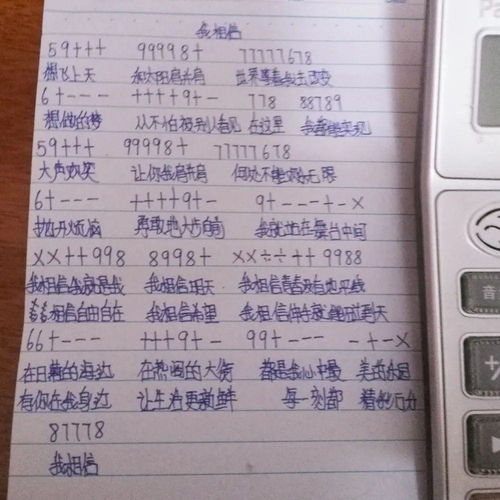 我相信
59+++ 99998+ 77777678
想飞上天 和太阳肩并肩 世界等着我去改变
6+--- ++++9+- 778 88789
想做的梦 从不怕被别人看见 在这里 我都能实现
59+++ 99998+ 77777678
大声欢笑 让你我肩并肩 何处不能欢乐无限
6+--- ++++9+- 9+---+-×
抛开烦恼 勇敢地大步向前 我就站在舞台中间
××++998 8998+ ××÷÷++9988
我相信我就是我 我相信明天 我相信青春没有地平线
相信自由自在 我相信希望 我相信伸手就能碰到天
66+--- +++9+- 99+--- -+-×
在日落的海边 在热闹的大街 都是我心中最 美的乐园
有你在我身边 让生活更新鲜 每一刻都 精彩万分
87778
我相信
音